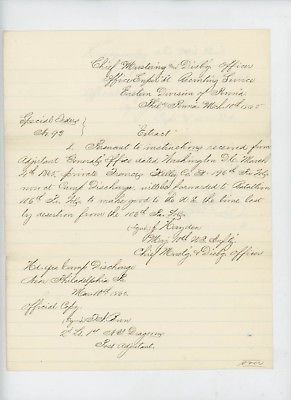 Chief Mustering and Disbg Officer
Office Supt Recruiting Service
Eastern Division of Penna
Phila Penna Mch 10th 1865
Special Orders
No. 93
Extract
1. Pursuant to instructions received from
Adjutant Generals Office dated Washington D.C. March
7th 1865, private Francis Co. H 196th Pa Vols
now at Camp Discharge, will be forwarded to Battalion
106th Pa Vols to make good to the U.S. the time lost
by desertion from the 106th Pa Vols.
Maj 10th U.S. Infty
Chief Mustg & Disbg Officer
Hd. qrs Camp Discharge
Near Philadelphia Pa
Mar 10th 1865
Official Copy
2d Lt. 1st N.Y. Dragoons
Post Adjutant.